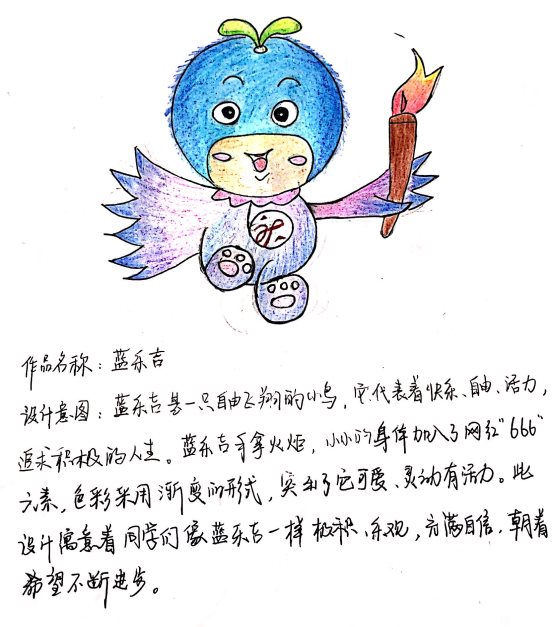 作品名称：蓝乐吉
设计意图：蓝乐吉是一只自由飞翔的小鸟，它代表着快乐、自由、活力，
追求积极的人生。蓝乐吉手拿火炬，小小的身体加入了网红“666”
元素，色彩采用渐变的形式，突出了它可爱、灵动有活力。此
设计寓意着同学们像蓝乐吉一样积极、乐观，充满自信，朝着
希望不断进步。